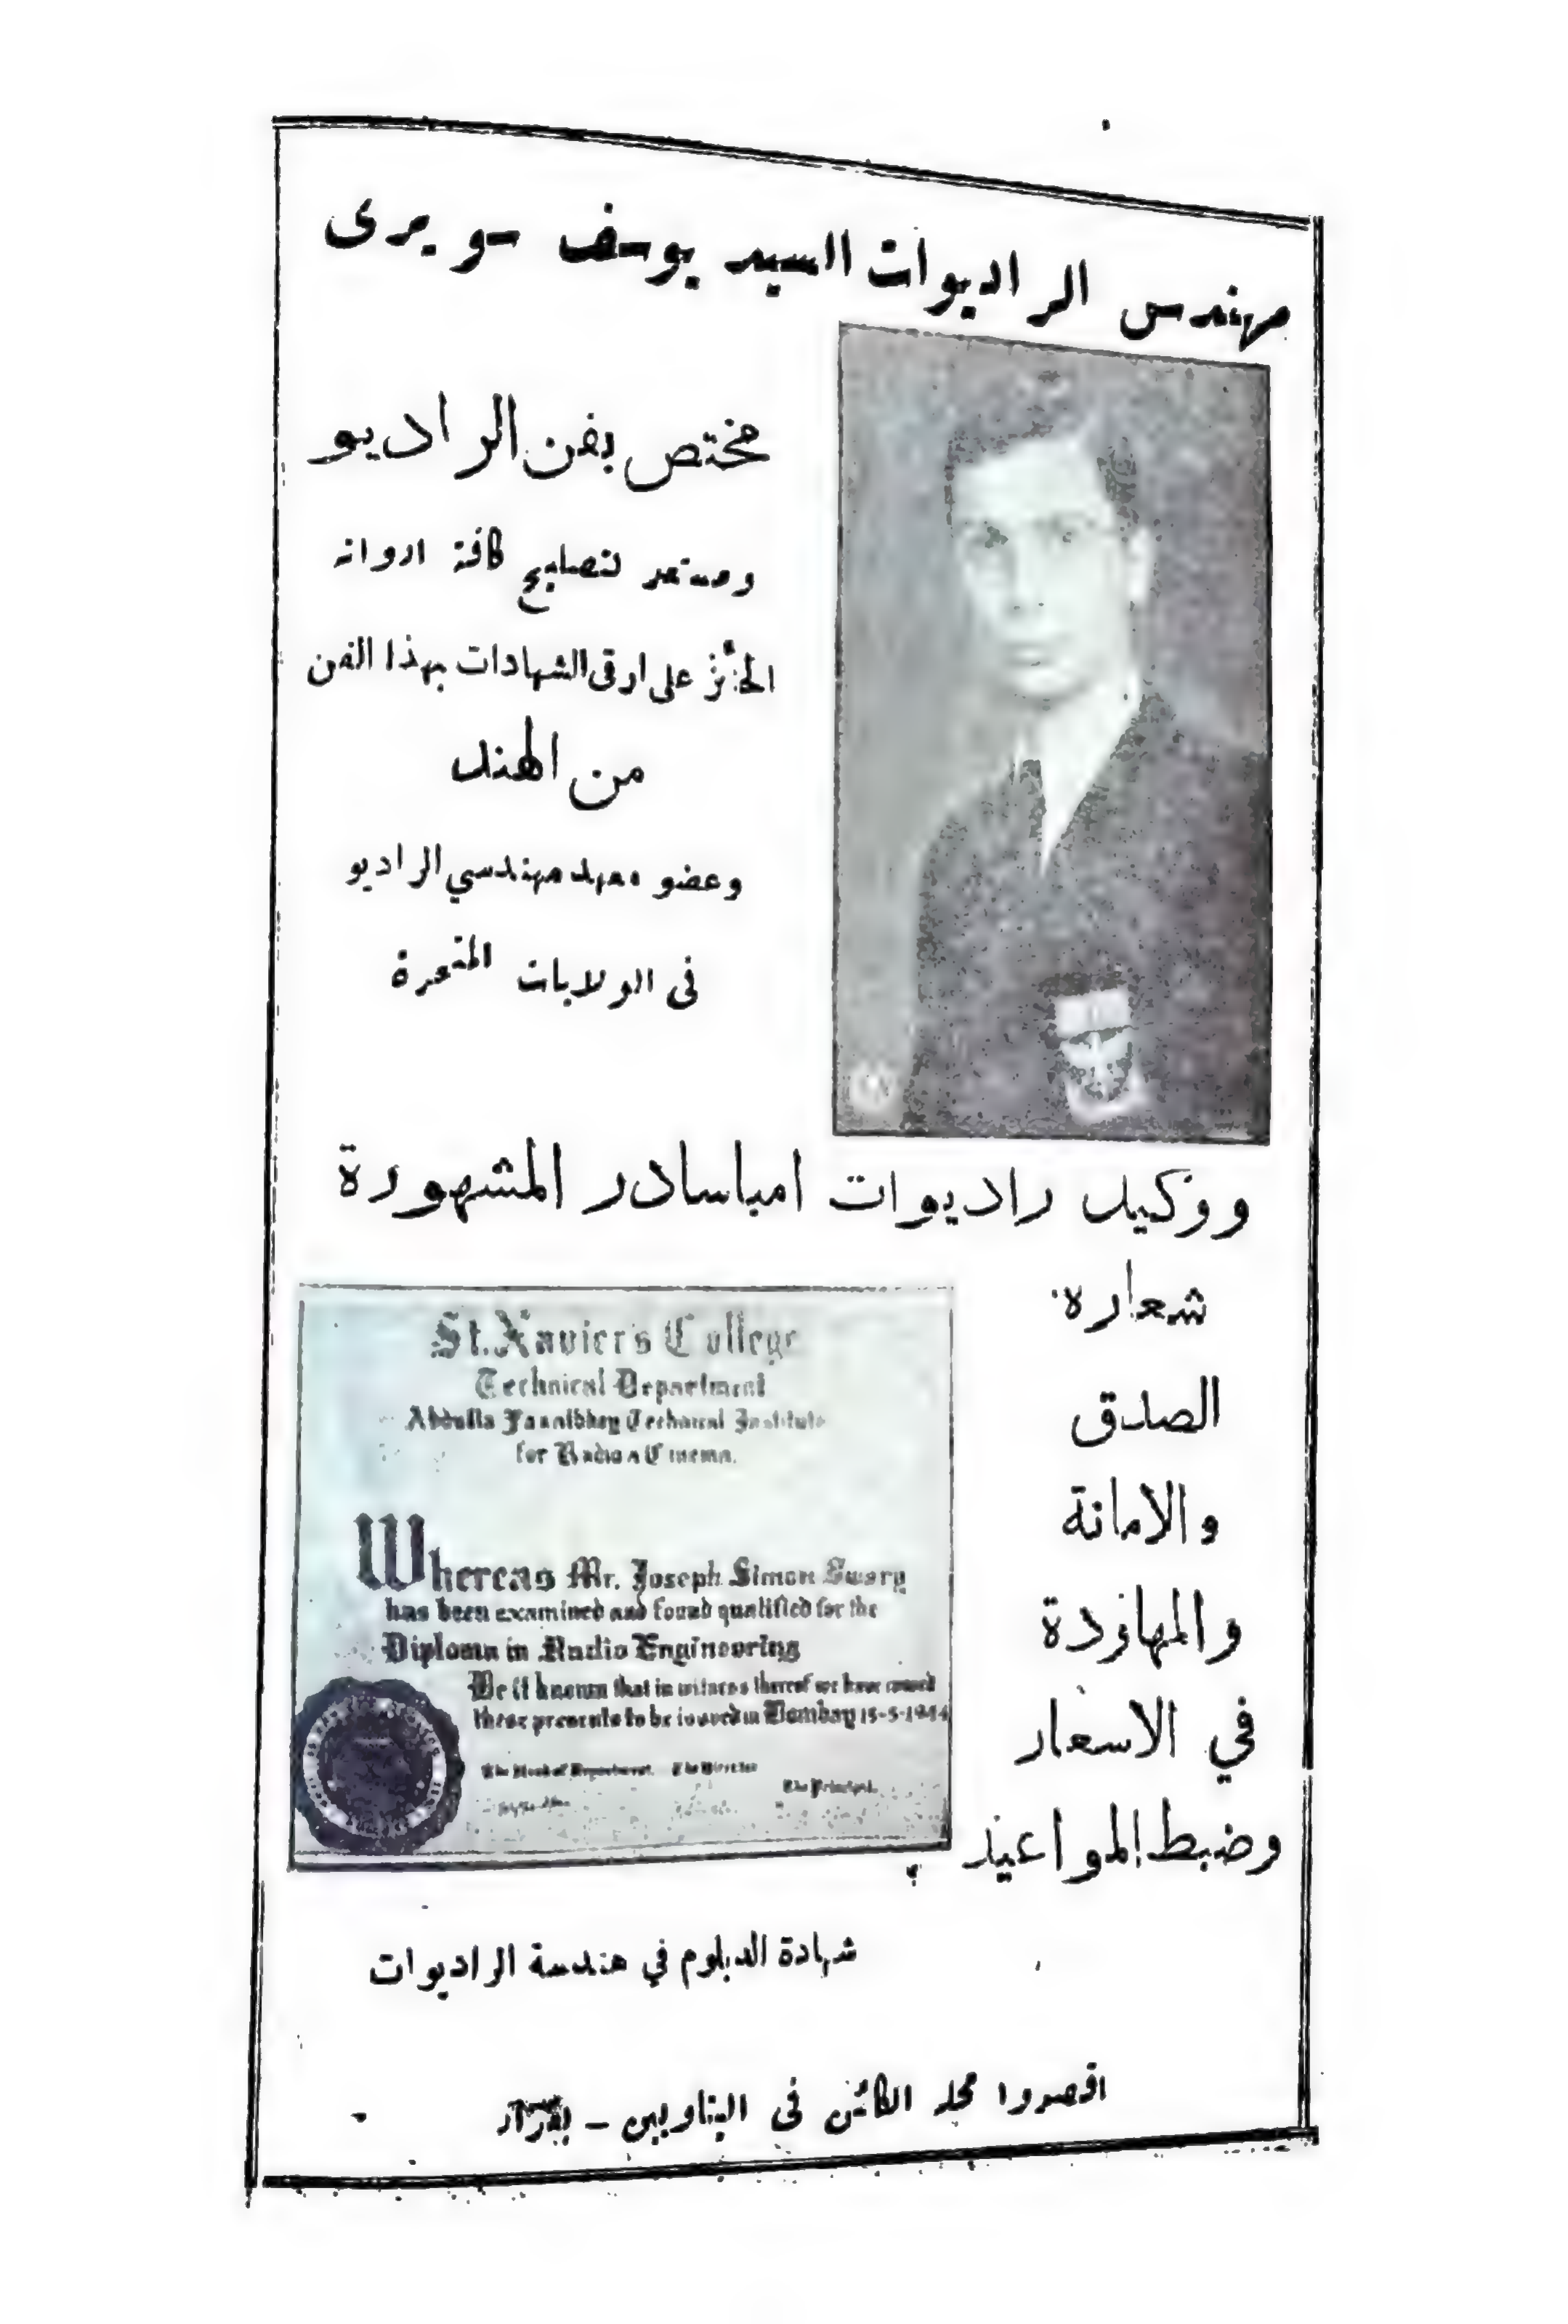 مهندس الراديوات السيد يوسف سويرى
مختص بفن الراديو
ومستعد لتصليح كافة ادواته
الحائز على ارقى الشهادات بهذا الفن
من الهند
وعضو معهد مهندسي الراديو
فى الولايات المتحدة
ووكيل راديوات امباسادر المشهورة
شعاره
الصدق
والامانة
والمهاودة
في الاسعار
وضبط المواعيد
St. Xavier's College
Technical Department
Abdulla Technical Institute
for Radio & Cinema.
Whereas Mr. Joseph Simon Swary
has been examined and found qualified for the
Diploma in Radio Engineering
Be it known that in witness thereof we have caused
these presents to be issued in Bombay 15-5-1944
The Head of Department. The Director
The Principal.
شهادة الدبلوم في هندسة الراديوات
اقصدوا محله الكائن فى البتاويين - بغداد